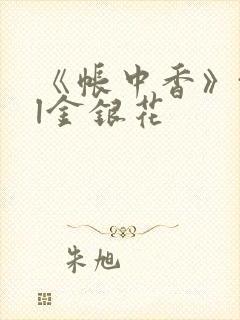 《帐中香》
|金银花
朱旭